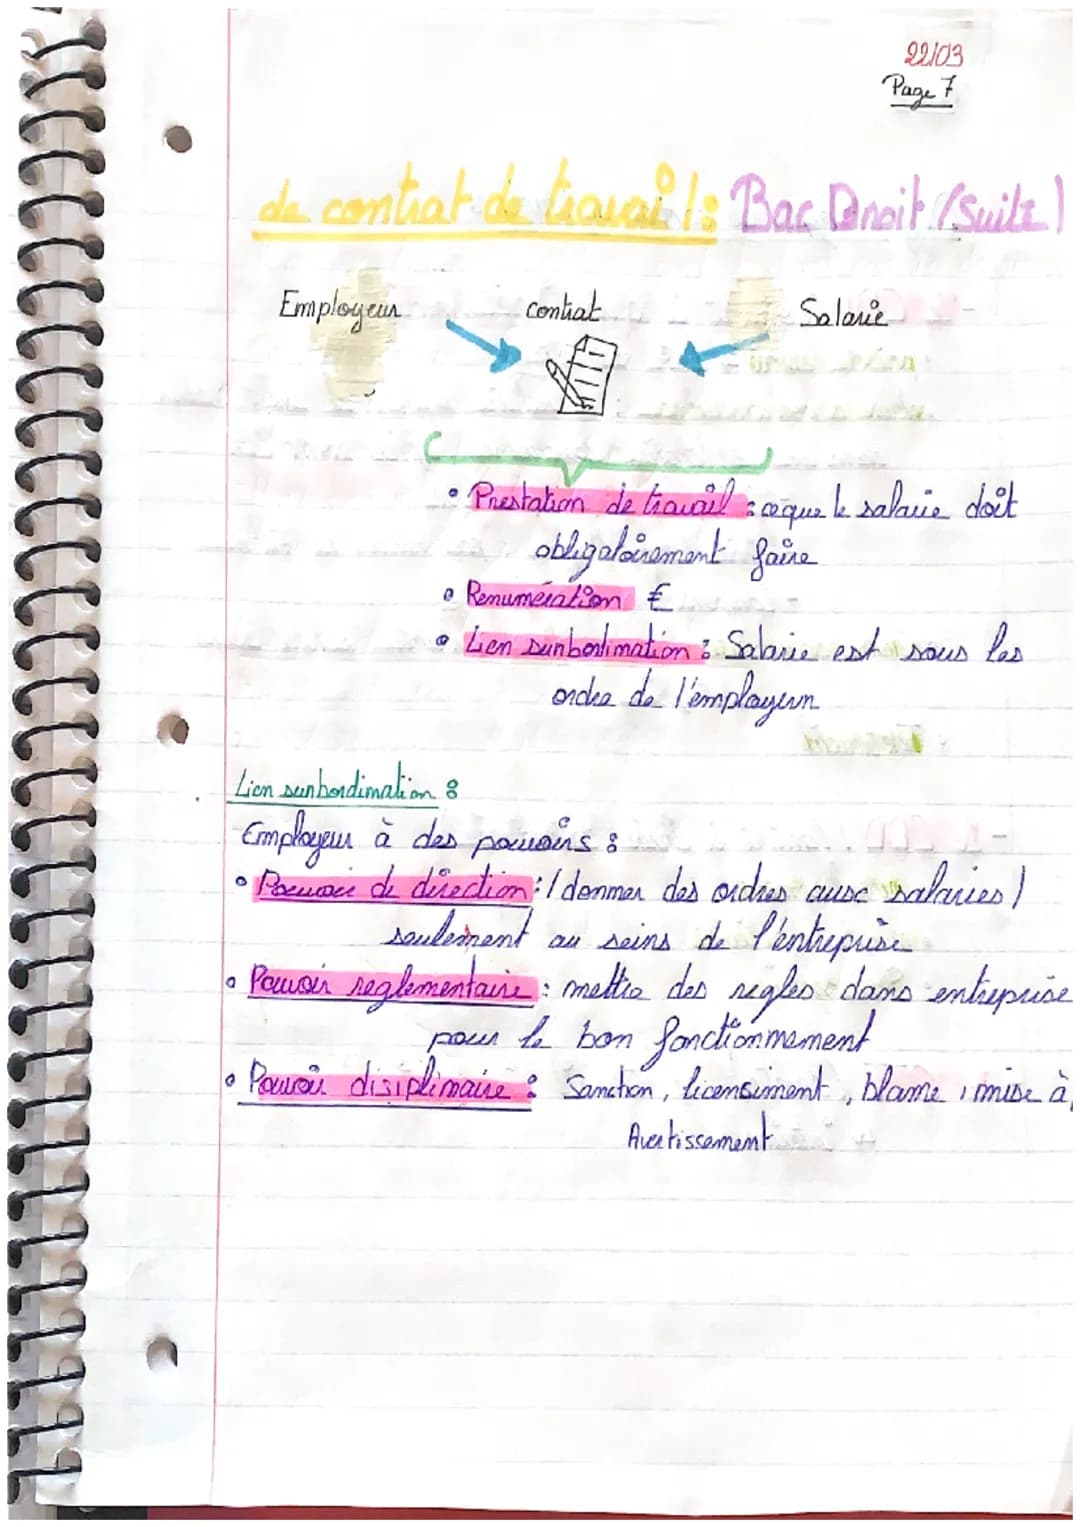 22/03
Page 7
Le contrat de travail : Bac Droit (Suite)
Employeur contrat Salarié
• Prestation de travail : ce que le salarié doit
obligatoirement faire
• Renumération €
• Lien sunbordination : Salarié est sous les
ordre de l'employeur
Lien sunbordination :
Employeur à des pouvoirs :
• Pouvoir de direction : (donner des ordres aux salariés)
seulement au seins de l'entreprise
• Pouvoir reglementaire : mettre des règles dans entreprise
pour le bon fonctionnement
• Pouvoir disiplinaire : Sanction, licensiment, blame, mise à
Avertissement